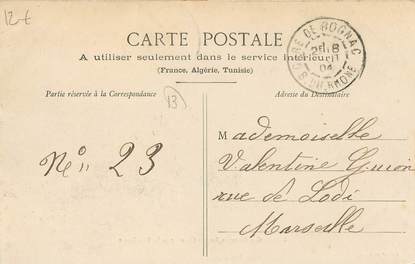 12-€
CARTE POSTALE
A utiliser seulement dans le service intérieur
(France, Algérie, Tunisie)
GARE DE ROGNAC
04
B. DU RHONE
Partie réservée à la Correspondance
13
Adresse du Destinataire
N° 23
Mademoiselle
Valentine Guion
rue de Lodi
Marseille